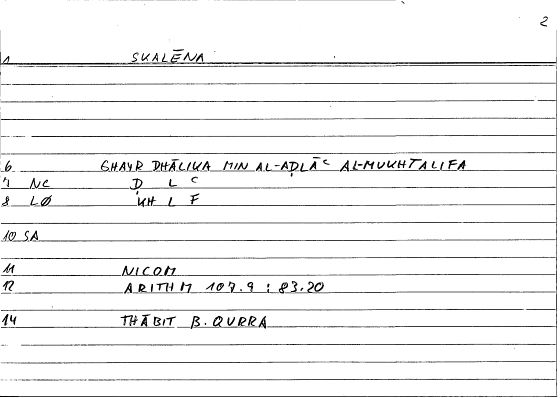 2
1 SKALĒNA
6 GHAYR DHĀLIKA MIN AL-AḌLĀᶜ AL-MUKHTALIFA
7 NC Ḍ L ᶜ
8 LØ KH L F
10 SA
11 NICOM
12 ARITHM 107.9 : 83.20
14 THĀBIT B. QURRA